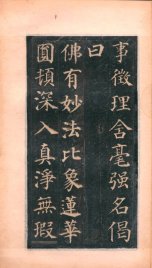 事徵理含毫强名偈
曰
佛有妙法比象蓮華
圓頓深入真淨無瑕